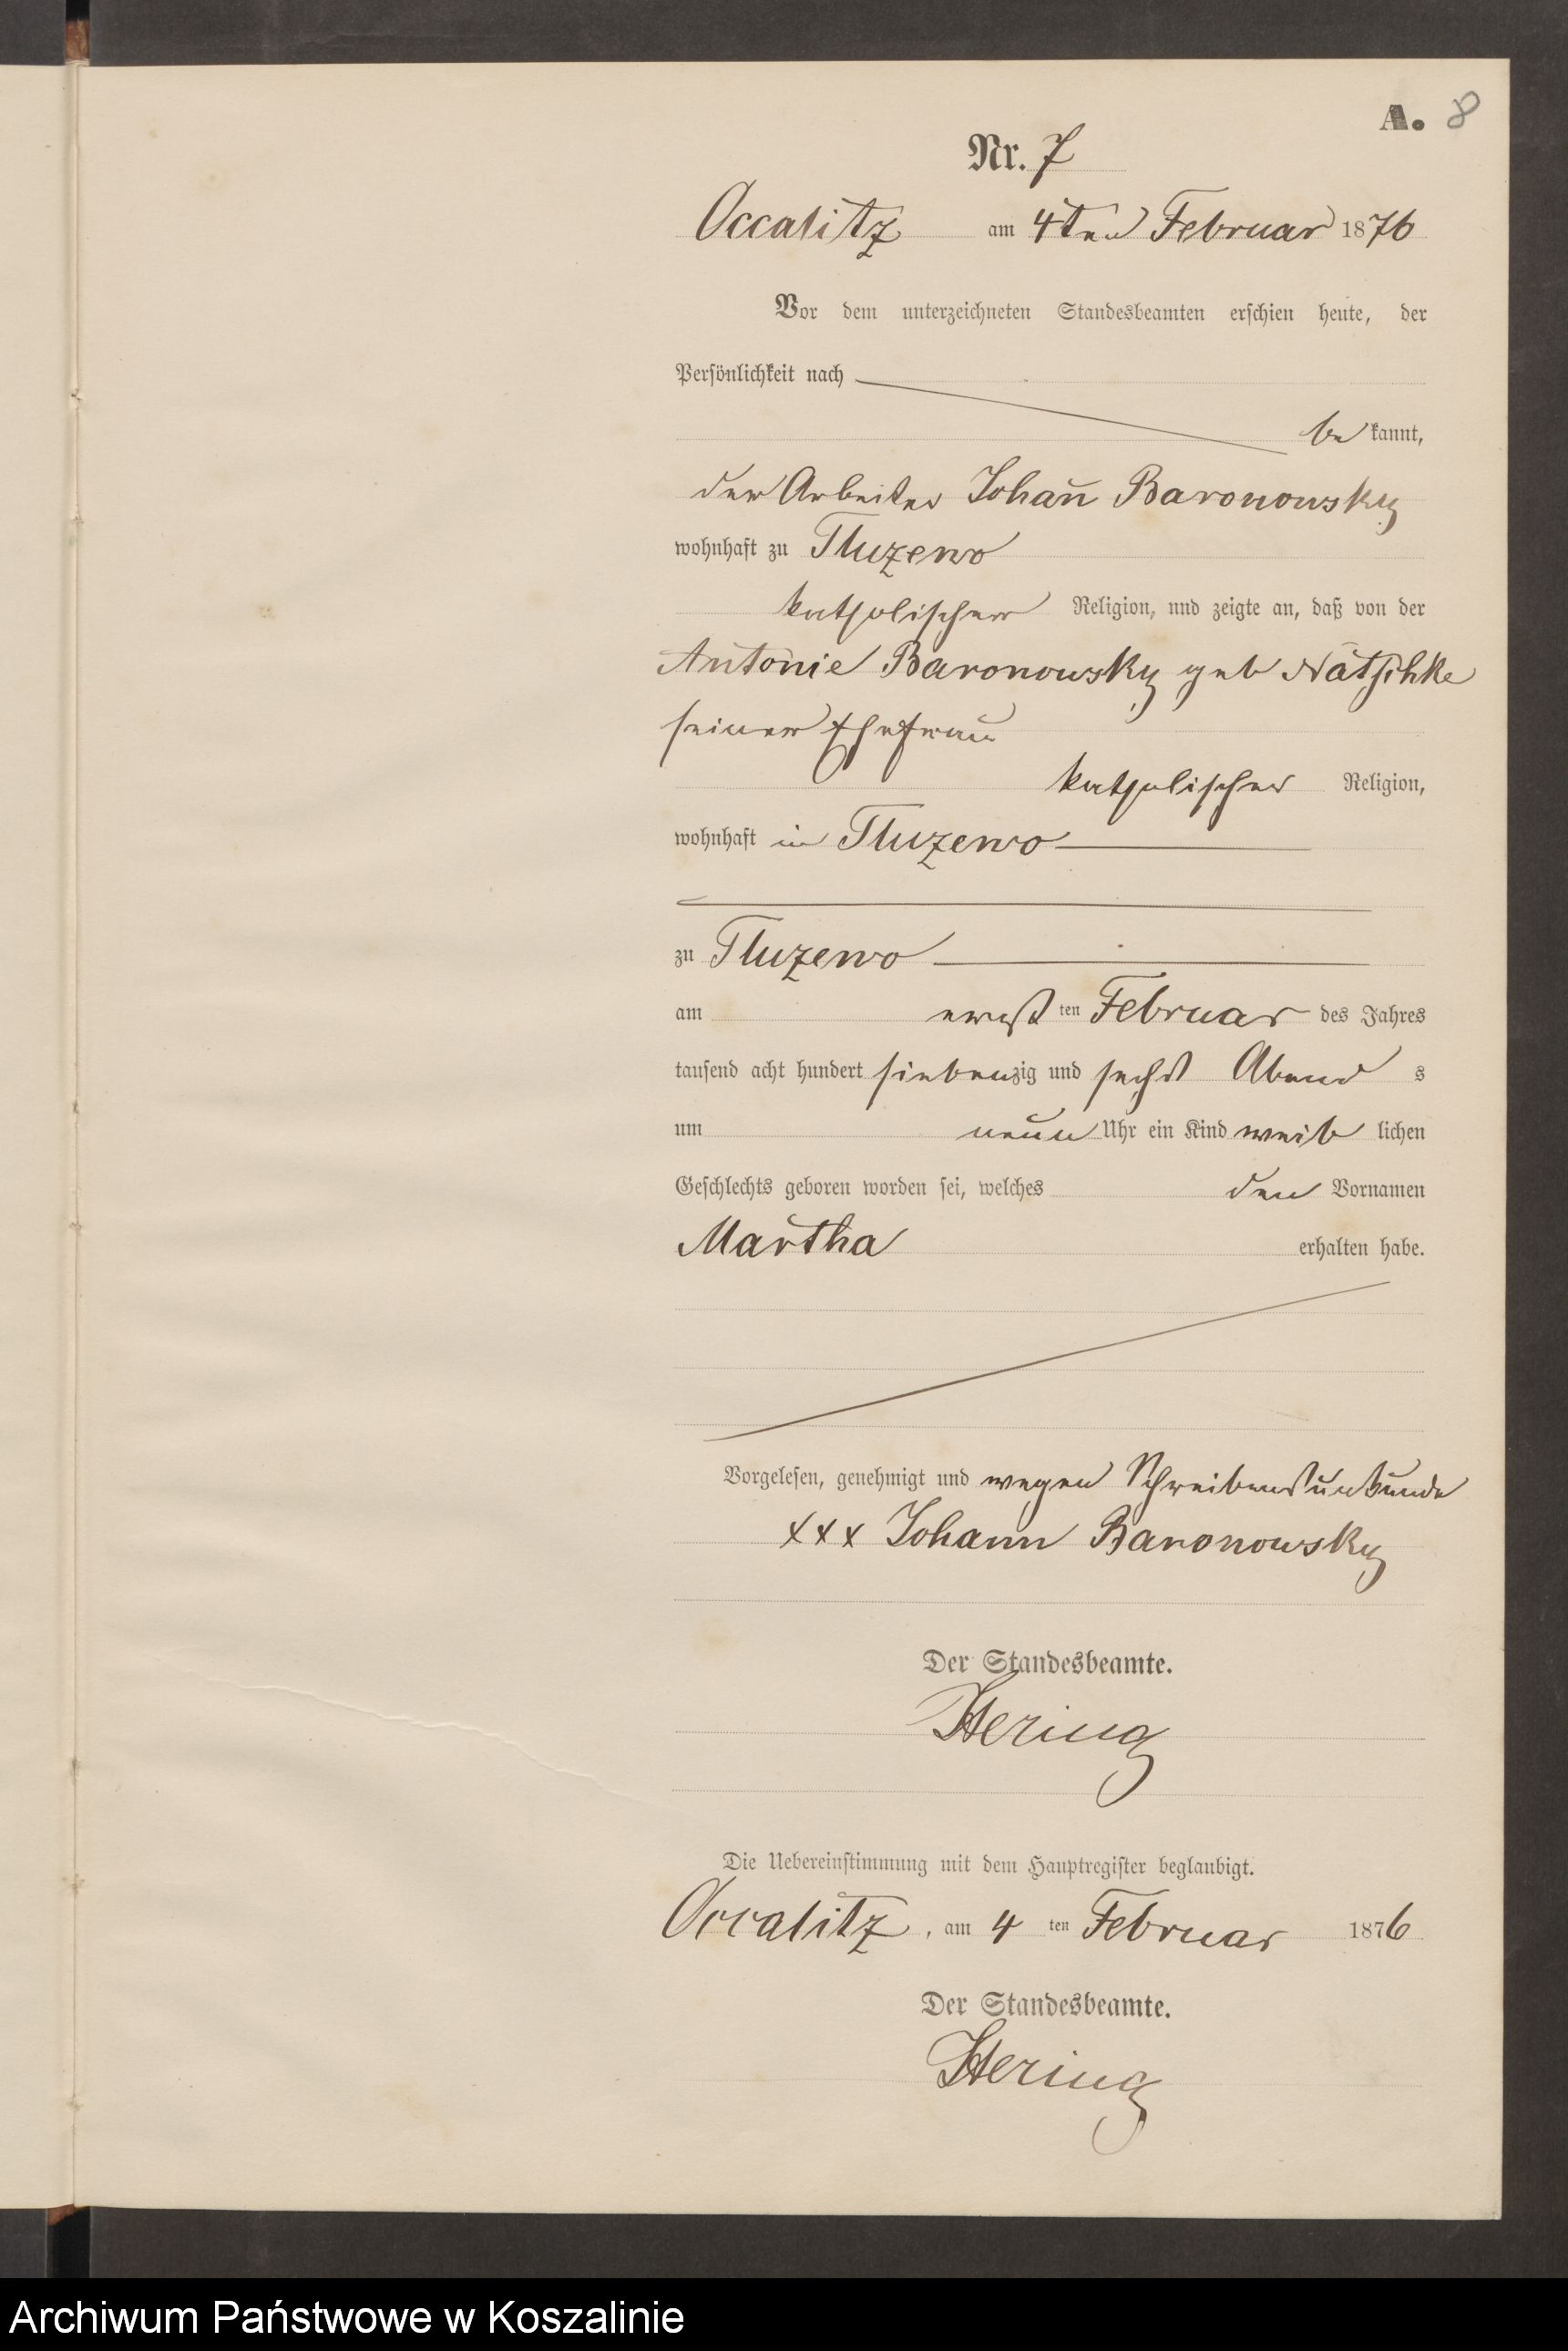 A. 8
Nr. 7
Occalitz am 4ten Februar 1876
Vor dem unterzeichneten Standesbeamten erschien heute, der
Persönlichkeit nach
be kannt,
der Arbeiter Johan̅ Baronowsky
wohnhaft zu Tluzewo
katholischer Religion, und zeigte an, daß von der
Antonie Baronowsky geb Nätschke
seiner Ehefrau
katholischer Religion,
wohnhaft in Tluzewo
zu Tluzewo
am erst ten Februar des Jahres
tausend acht hundert siebenzig und sechs Abend s
um neun Uhr ein Kind weib lichen
Geschlechts geboren worden sei, welches den Vornamen
Martha erhalten habe.
Vorgelesen, genehmigt und wegen Schreibensunkunde
xxx Johann Baronowsky
Der Standesbeamte.
Hering
Die Uebereinstimmung mit dem Hauptregister beglaubigt.
Occalitz, am 4 ten Februar 1876
Der Standesbeamte.
Hering
Archiwum Państwowe w Koszalinie